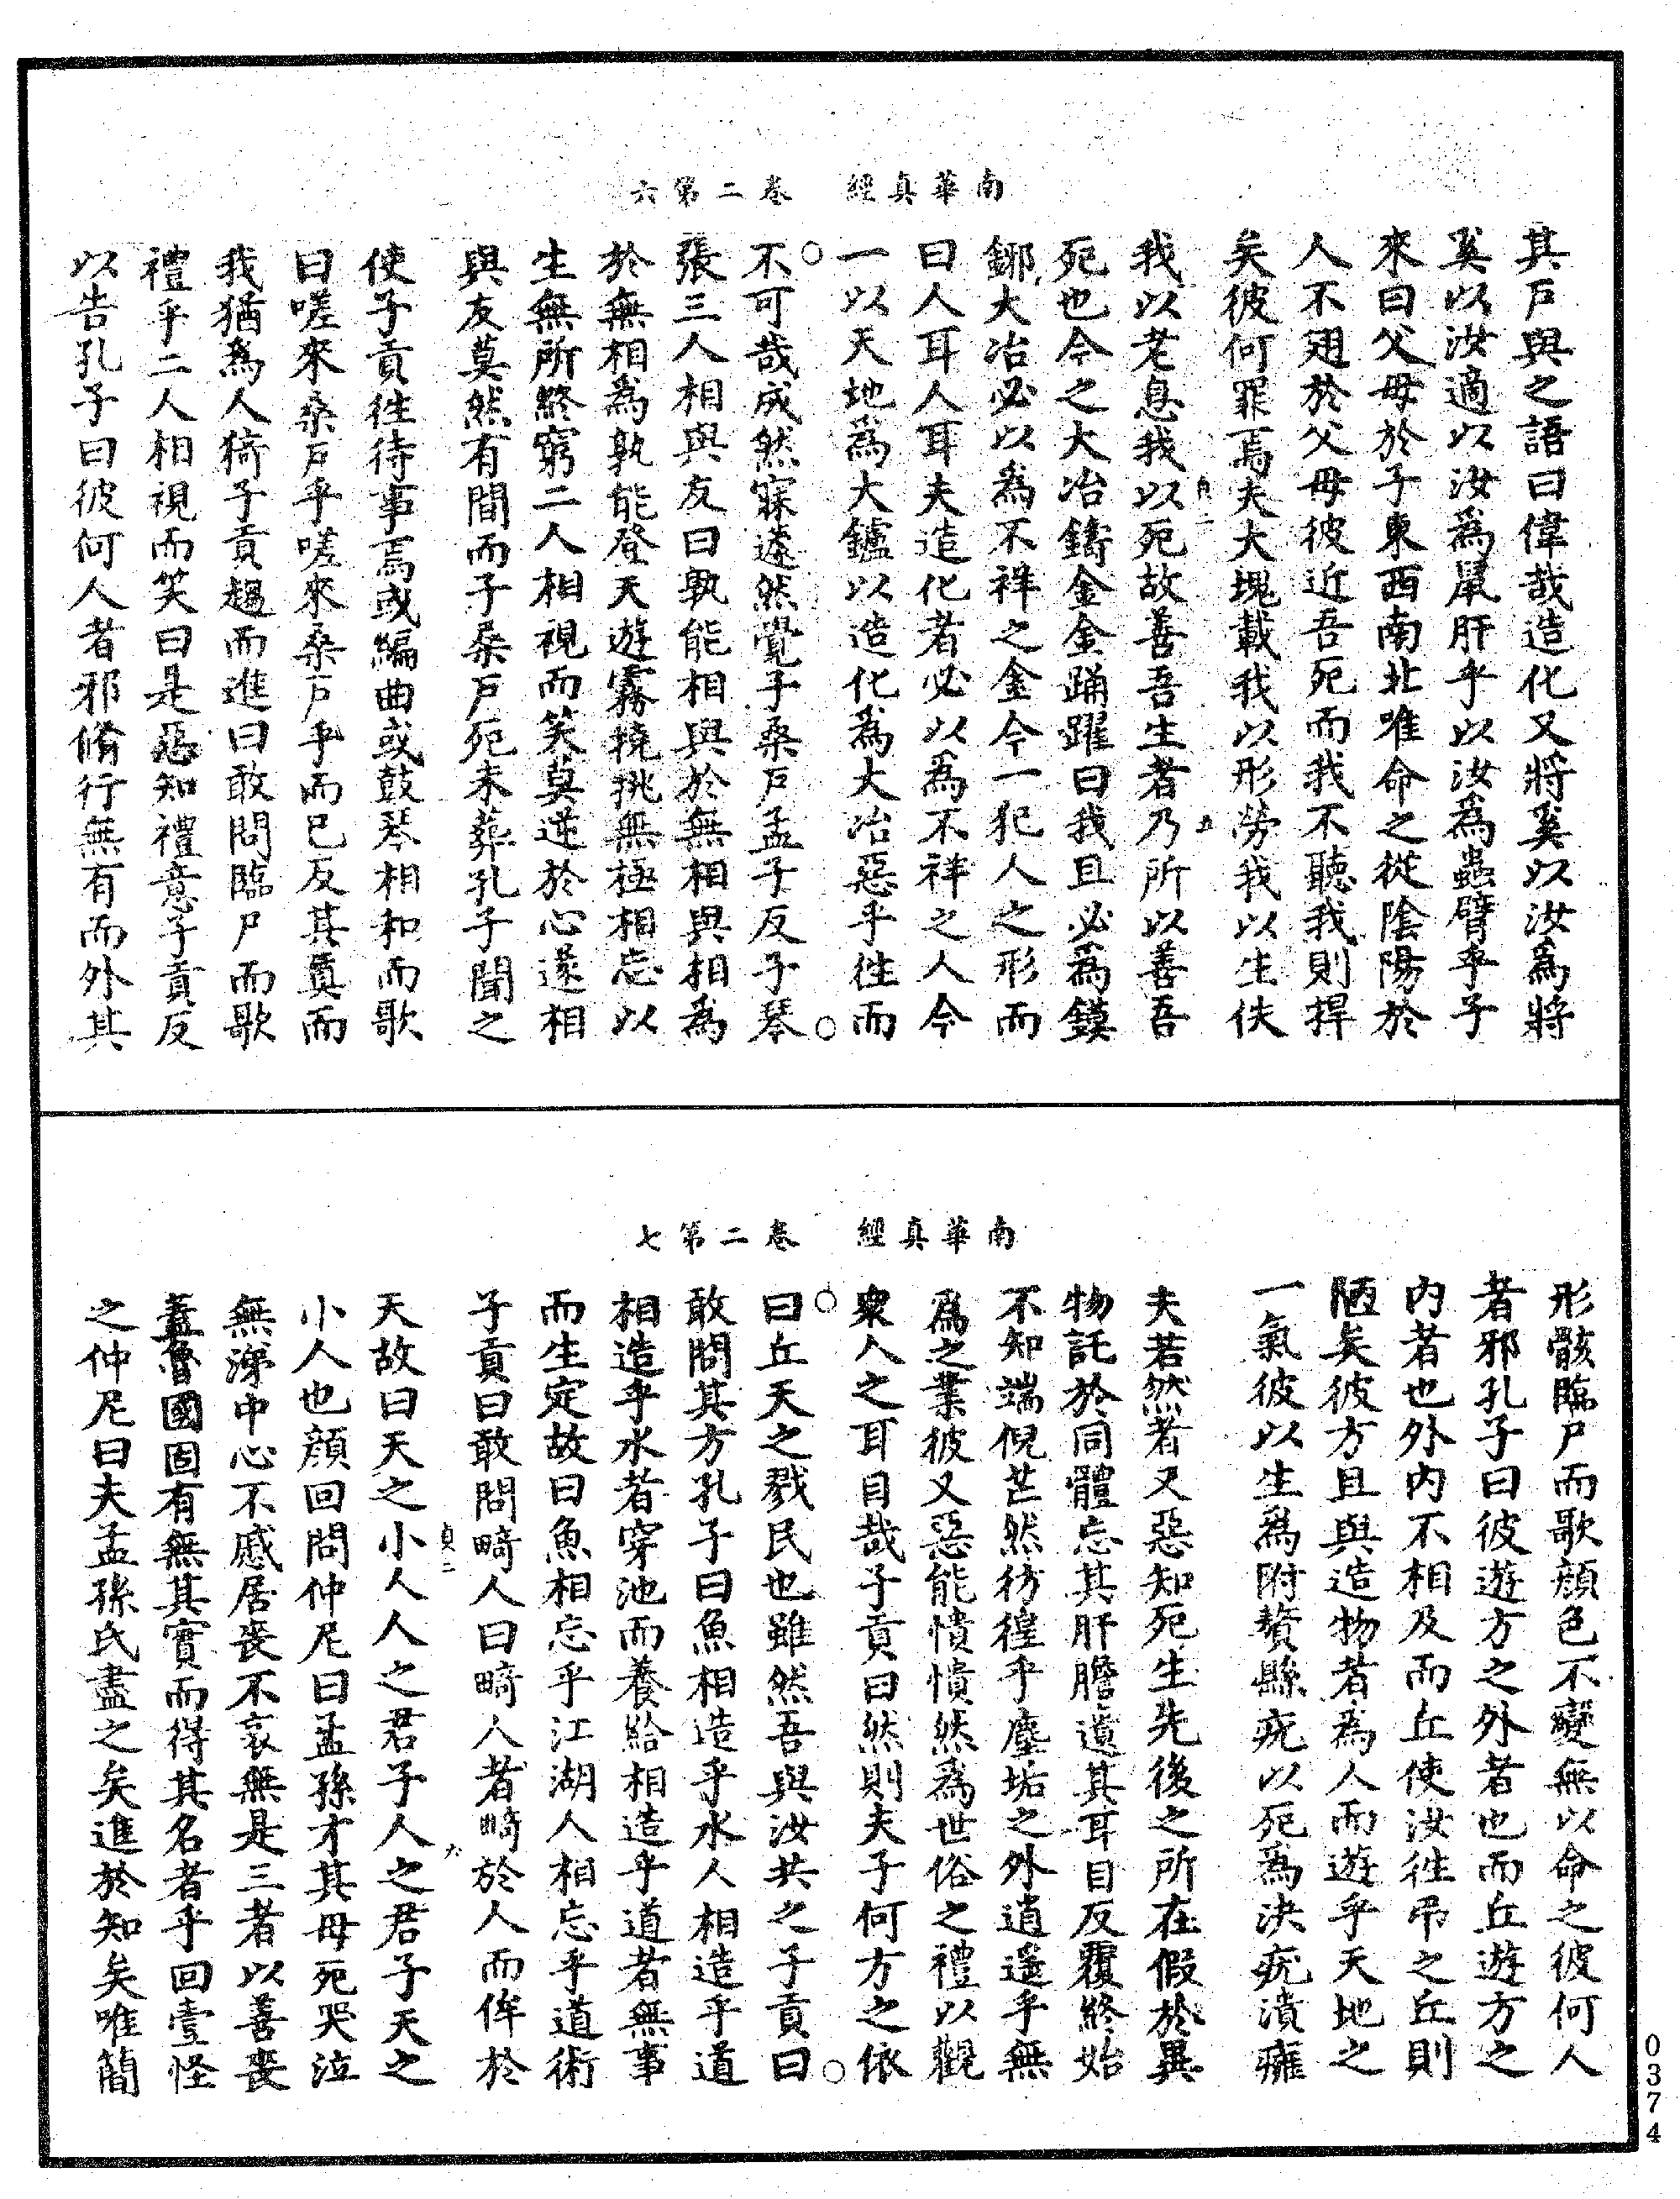 南華真經　卷二第六
其戶與之語曰偉哉造化又將奚以汝為將
奚以汝適以汝為鼠肝乎以汝為蟲臂乎子
來曰父母於子東西南北唯命之從陰陽於
人不翅於父母彼近吾死而我不聽我則捍
矣彼何罪焉夫大塊載我以形勞我以生佚
我以老息我以死故善吾生者乃所以善吾
死也今之大冶鑄金金踊躍曰我且必為鏌
鋣大冶必以為不祥之金今一犯人之形而
曰人耳人耳夫造化者必以為不祥之人今
一以天地為大鑪以造化為大冶惡乎往而
○不可哉成然寐蘧然覺子桑戶孟子反子琴○
張三人相與友曰孰能相與於無相與相為
於無相為孰能登天遊霧撓挑無極相忘以
生無所終窮二人相視而笑莫逆於心遂相
與友莫然有間而子桑戶死未葬孔子聞之
使子貢往待事焉或編曲或鼓琴相和而歌
曰嗟來桑戶乎嗟來桑戶乎而已反其真而
我猶為人猗子貢趨而進曰敢問臨尸而歌
禮乎二人相視而笑曰是惡知禮意子貢反
以告孔子曰彼何人者邪脩行無有而外其
南華真經　卷二第七
形骸臨尸而歌顏色不變無以命之彼何人
者邪孔子曰彼遊方之外者也而丘遊方之
內者也外內不相及而丘使汝往弔之丘則
陋矣彼方且與造物者為人而遊乎天地之
一氣彼以生為附贅縣疣以死為決疣潰癰
夫若然者又惡知死生先後之所在假於異
物託於同體忘其肝膽遺其耳目反覆終始
不知端倪芒然彷徨乎塵垢之外逍遙乎無
為之業彼又惡能憒憒然為世俗之禮以觀
眾人之耳目哉子貢曰然則夫子何方之依
○曰丘天之戮民也雖然吾與汝共之子貢曰○
敢問其方孔子曰魚相造乎水人相造乎道
相造乎水者穿池而養給相造乎道者無事
而生定故曰魚相忘乎江湖人相忘乎道術
子貢曰敢問畸人曰畸人者畸於人而侔於
貞二　六
天故曰天之小人人之君子人之君子天之
小人也顏回問仲尼曰孟孫才其母死哭泣
無涕中心不慼居喪不哀無是三者以善喪
蓋魯國固有無其實而得其名者乎回壹怪
之仲尼曰夫孟孫氏盡之矣進於知矣唯簡
0374